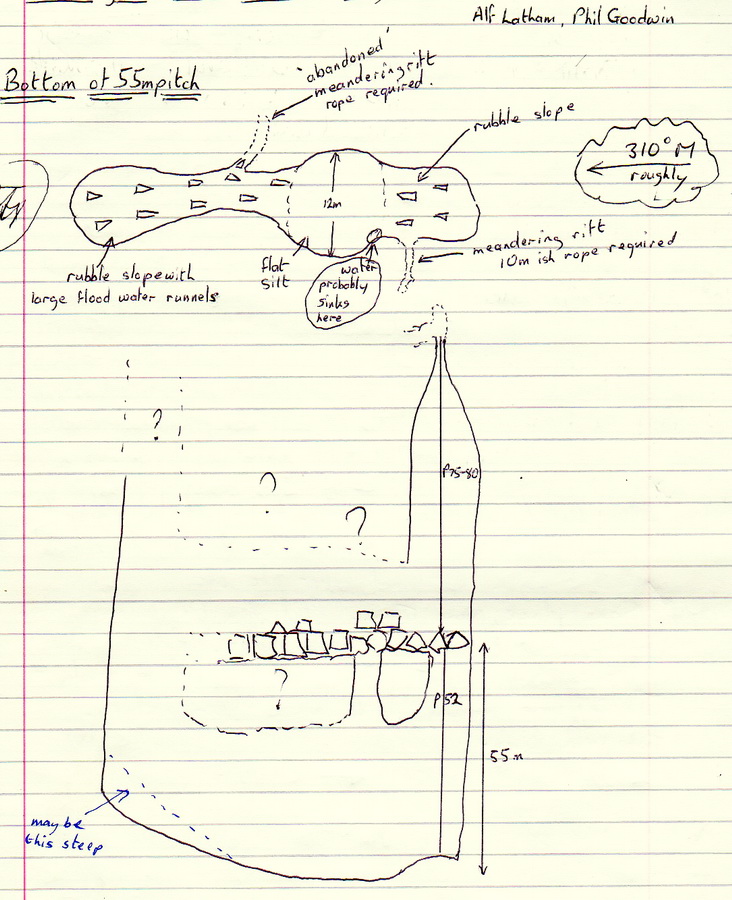 Alf Latham, Phil Goodwin
Bottom of 55m pitch
'abandoned'
meandering rift
rope required.
rubble slope
310° M
roughly
12m
meandering rift
10m ish rope required
rubble slope with
large flood water runnels
flat
silt
water
probably
sinks
here
?
P75-80
?
?
?
P52
55m
may be
this steep